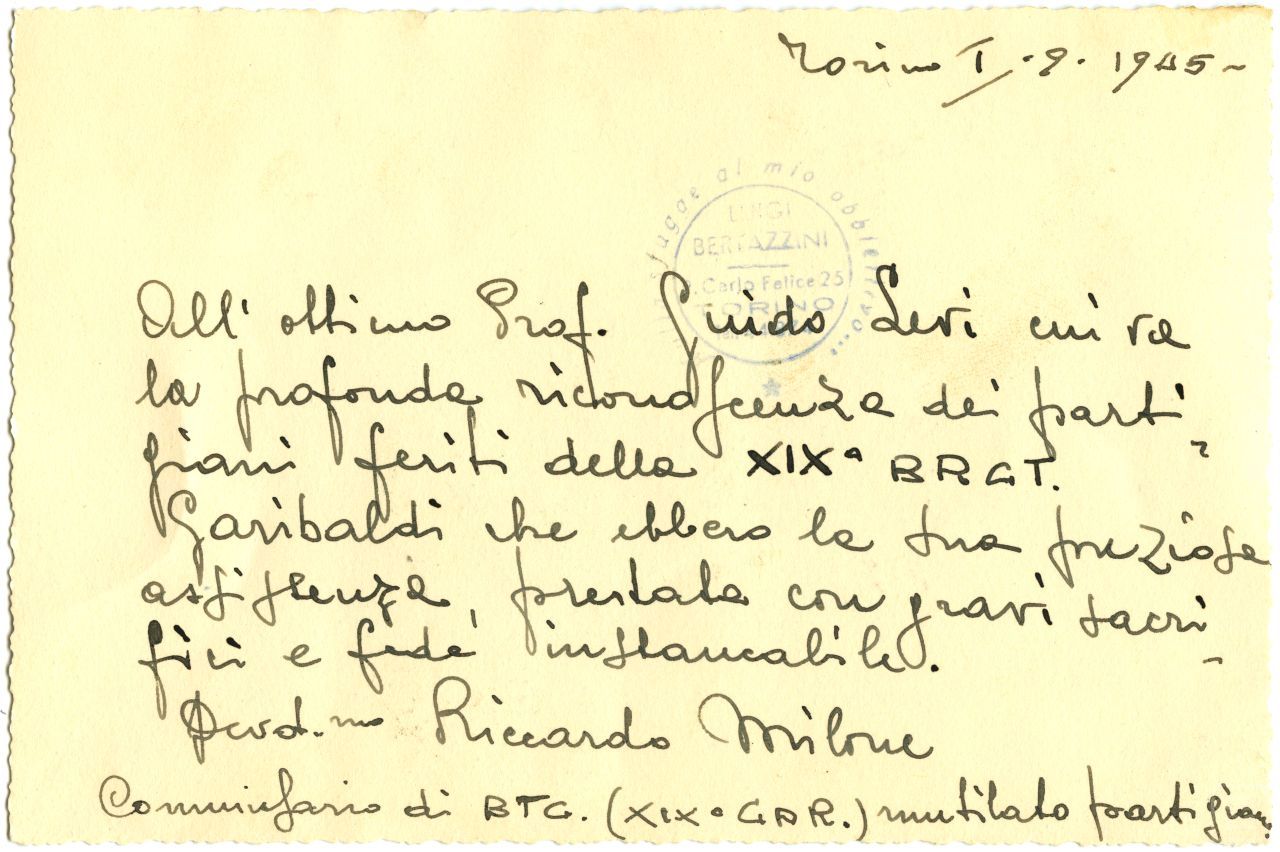 Torino I.9.1945~
sfugge al mio obbiettivo...
LUIGI
BERTAZZINI
Carlo Felice 25
TORINO
All'ottimo Prof. Guido Levi cui va
la profonda riconoscenza dei parti
giani feriti della XIXª BRGT.
Garibaldi che ebbero la sua preziosa
assistenza, prestata con gravi sacri-
fici e fede instancabile.
Devd.mo Riccardo Milone
Commissario di BTG. (XIXª GAR.) mutilato partigian.